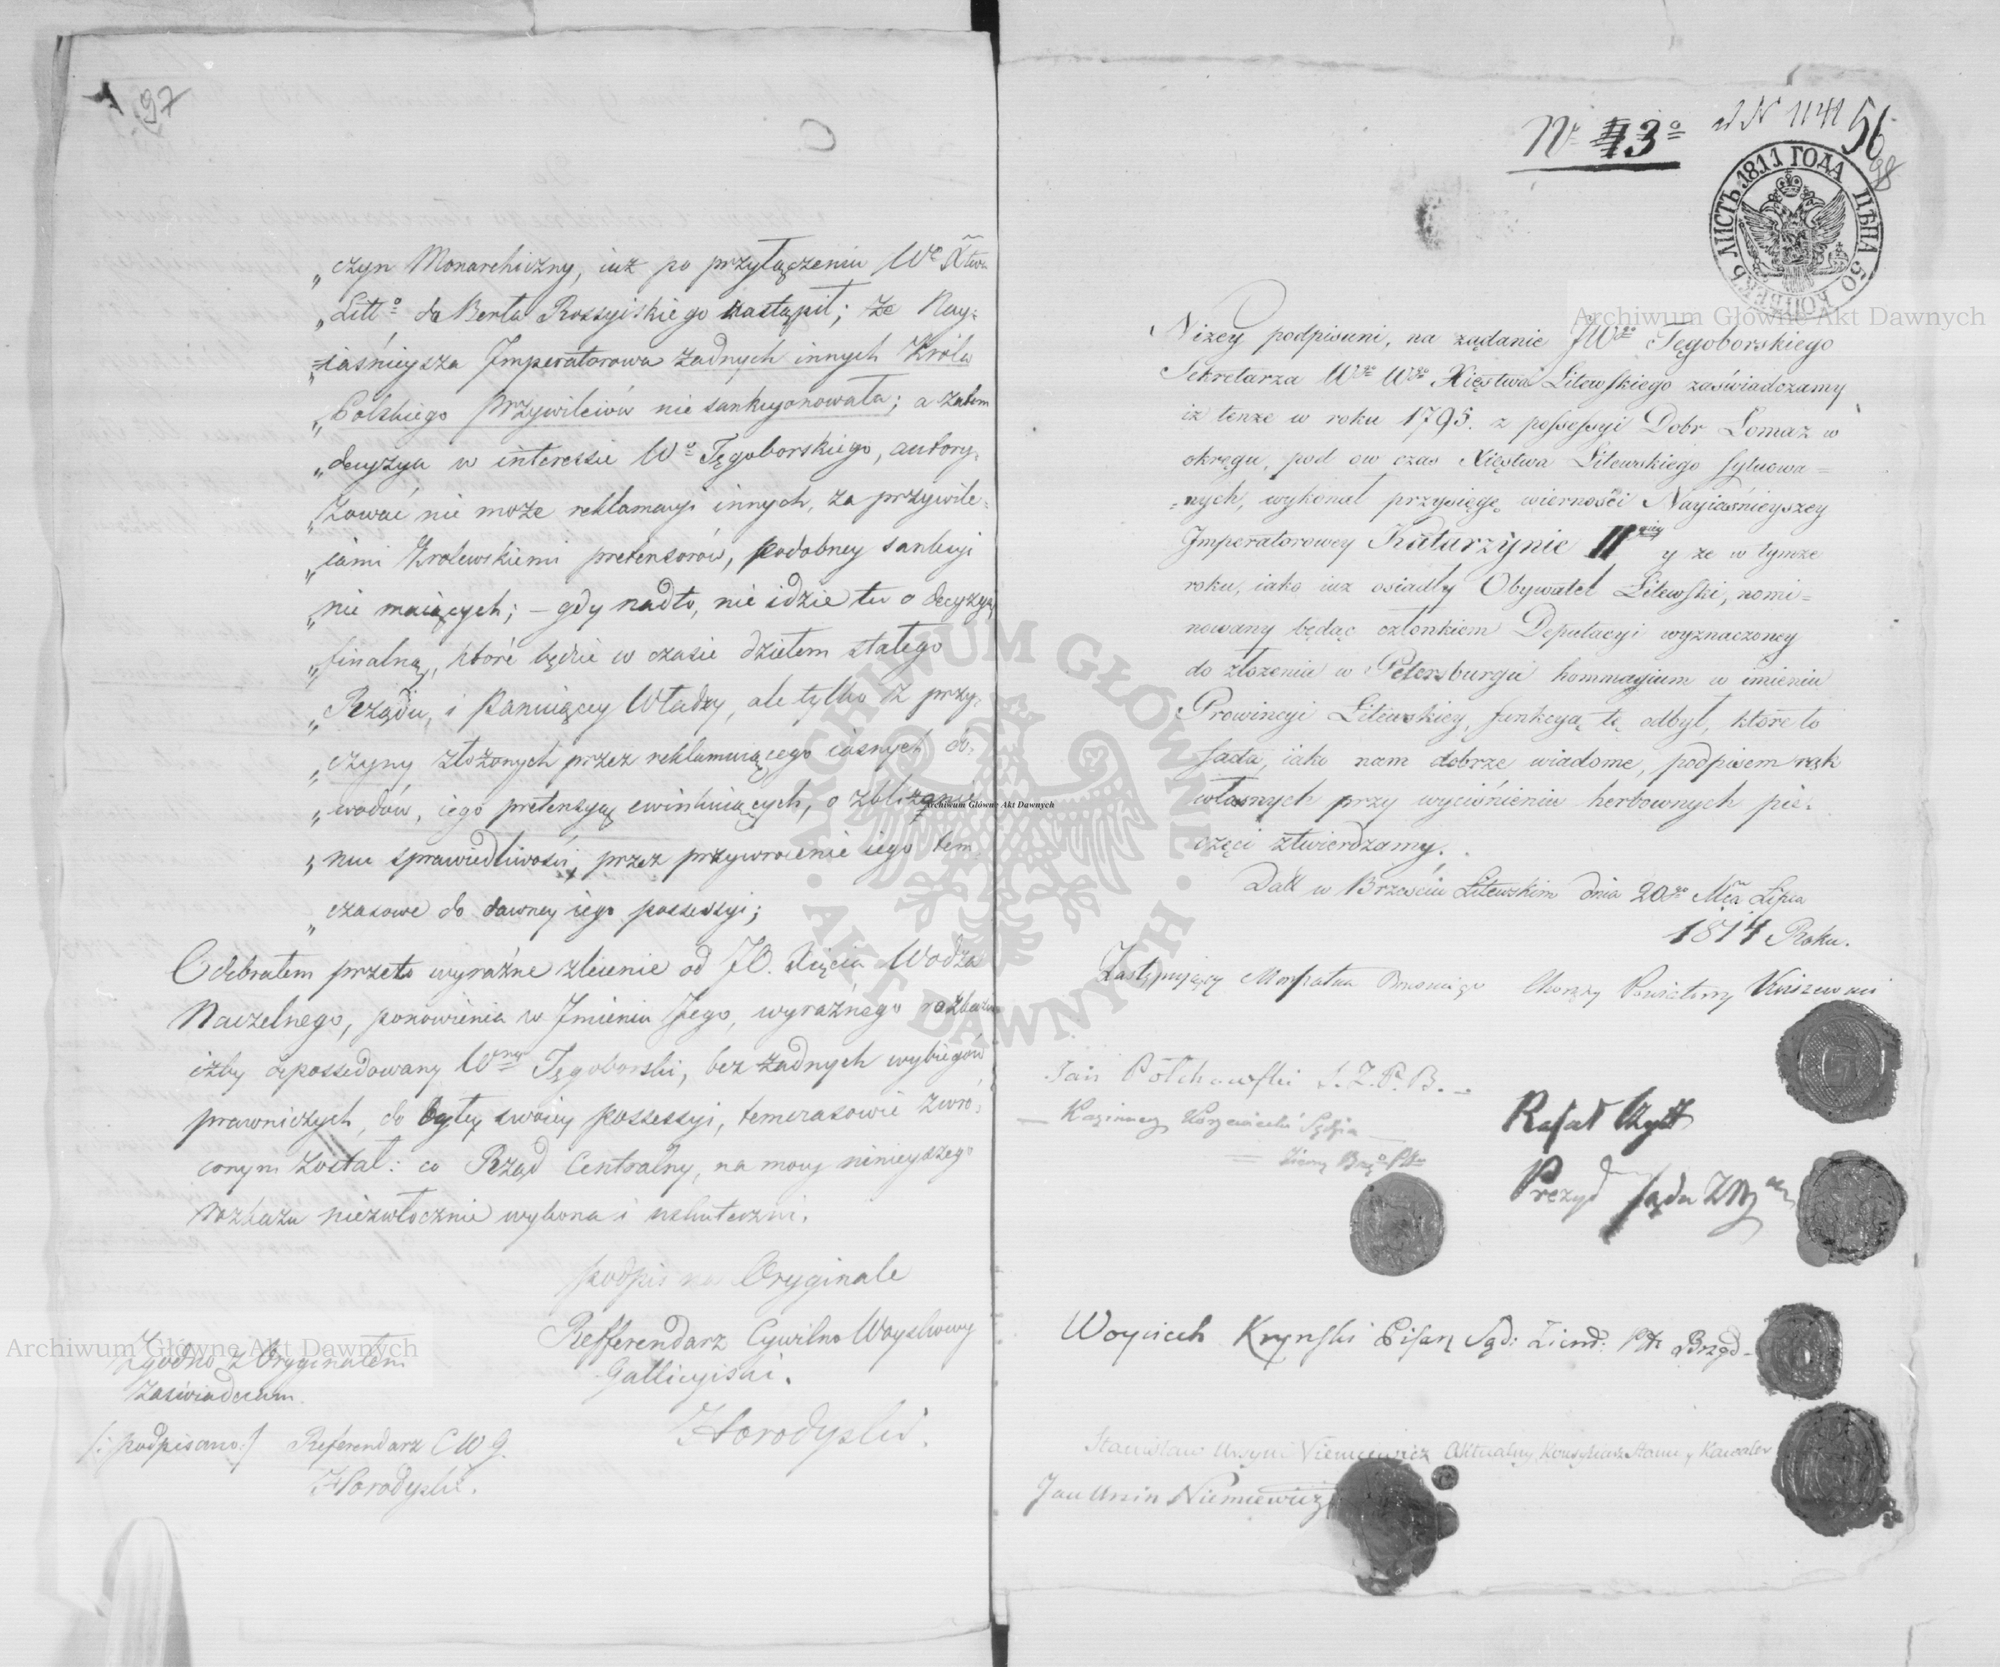 97
„czyn Monarchiczny, iuż po przyłączeniu Wo Xtwa
„Litto do Berła Rossyiskiego nastąpił; że Nay-
„iaśnieysza Imperatorowa żadnych innych Króla
„Polskiego Przywileiów nie sankcyonowała; a zatem
„decyzya w interessie Wo Tęgoborskiego, autory-
„zować nie może reklamacyi innych, za przywile-
„iami Krolewskiemi pretensorów, podobney sankcyi
„nie maiących; – gdy nadto, nie idzie tu o decyzyą
„finalną, które będzie w czasie dziełem stałego
„Rządu, i Panuiącey Władzy, ale tylko z przy-
„czyny złożonych przez reklamuiącego iasnych do-
„wodów, iego pretensyą ewinkuiących, o zbliżenie
„mu sprawiedliwości, przez przywrócenie iego tem-
„czasowe do dawney iego possessyi;
Odebrałem przeto wyraźne zlecenie od JO. Xięcia Wodza
Naczelnego, ponowienia w Imieniu Jego, wyraźnego rozkazu
iżby depossedowany Wny Tęgoborski, bez żadnych wybiegów
prawniczych, do byłey swoiey possessyi, temczasowie zwró-
conym został: co Rząd Centralny, na mocy ninieyszego
rozkazu niezwłocznie wykona i uskuteczni.
podpis na Oryginale
Refferendarz Cywilno Woyskowy
Gallicyiski.
Horodyski.
Zgodno z Oryginałem
Zaświadczam.
/: podpisano :/ Referendarz C W G.
Horodyski.
N 1141 56
Nr 13o
98
ЛИСТЪ 1811 ГОДА ЦѢНА 50 КОПѢЕКЪ
Niżey podpisani, na żądanie JWgo Tęgoborskiego
Sekretarza Wgo Wgo Xięstwa Litewskiego zaświadczamy
iż tenże w roku 1795. z possessyi Dobr Łomaz w
okręgu, pod ow czas Xięstwa Litewskiego sytuowa=
=nych, wykonał przysięgę wierności Nayiaśnieyszey
Imperatorowey Katarzynie IIgiey y że w tymże
roku, iako iuż osiadły Obywatel Litewski, nomi=
nowany będąc członkiem Deputacyi wyznaczoney
do złożenia w Petersburgu hommagium w imieniu
Prowincyi Litewskiey, funkcyą tę odbył, które to
fada, iako nam dobrze wiadome, podpisem rąk
własnych przy wyciśnieniu herbownych pie-
częci ztwierdzamy.
Datt w Brześciu Litewskim dnia 20go Mca Lipca
1814 Roku.
Zastępuiący Marszałka Chorąży Powiatowy
Jan Połchowski S. Z. P. B.
Kazimierz Sędzia
Ziems Brzgo Pttu
Rafał
Prezyd Sądu
Woyciech Krynski Pisarz Sąd: Ziem: Ptt Brzgo
Stanisław Ursyn Niemcewicz Aktualny Konsyliarz Stanu y Kawaler
Jan Ursin Niemcewicz
Archiwum Główne Akt Dawnych
Archiwum Główne Akt Dawnych
Archiwum Główne Akt Dawnych
ARCHIWUM GŁÓWNE
AKT DAWNYCH